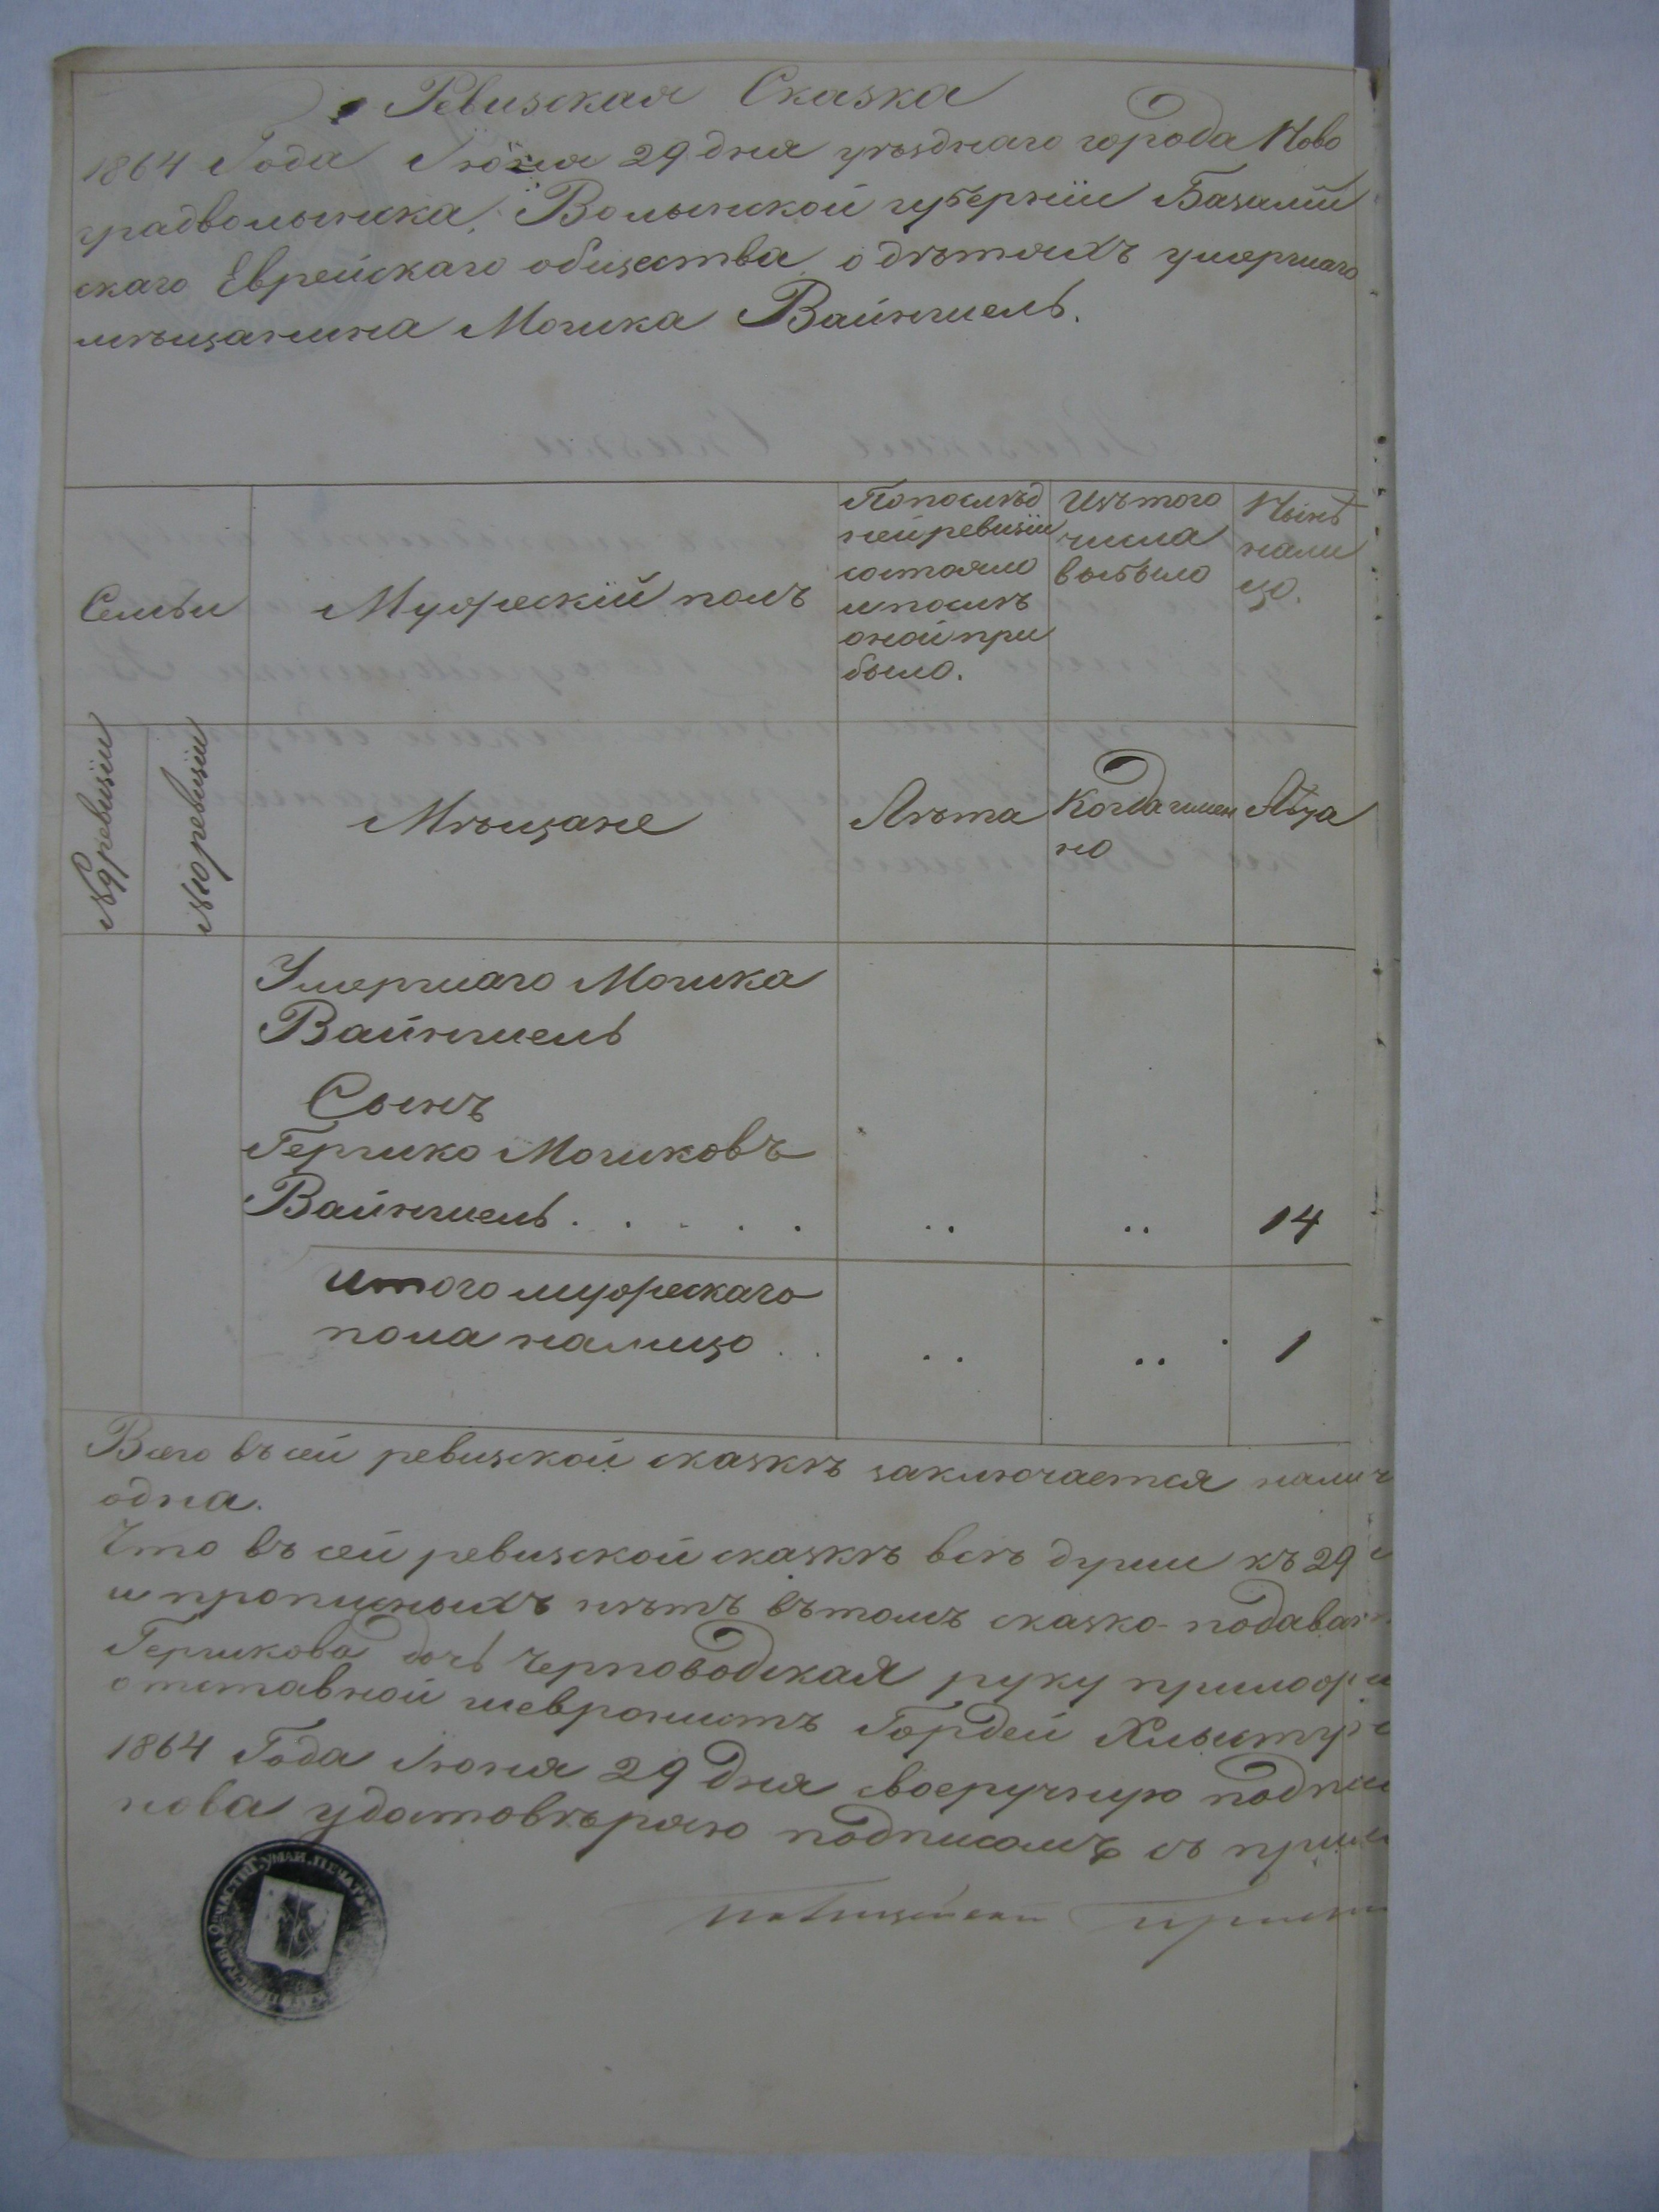 Ревизская Сказка
1864 Года Іюня 29 дня уѣзднаго города Ново
градволынска, Волынской губерніи Базалий
скаго Еврейскаго общества о дѣтяхъ умершаго
мѣщанина Мошка Вайншель.
Семьи
Мужескій полъ
По послѣд
ней ревизіи
состояло
и послѣ
оной при
было.
Изъ того
числа
выбыло
Нынѣ
нали
цо.
№ 9 ревизіи
№ 10 ревизіи
Мѣщане
Лѣта
Когда имен
но
Лѣта
Умершаго Мошка
Вайншель
Сынъ
Гершко Мошковъ
Вайншель . . . . . .. .. 14
Итого мужескаго
пола налицо . . .. .. 1
Всего въ сей ревизской сказкѣ заключается налич
одна.
Что въ сей ревизской сказкѣ всѣ души къ 29
и прописныхъ нѣтъ въ томъ сказко-подават
Гершкова дочь Черповодская руку прилож
отставной шевронистъ Гордей
1864 Года Іюня 29 Дня своеручную подпи
нова удостовѣряю подписомъ съ прил
Полицейскій Прист
Г. УМАН. ПЕЧАТЬ